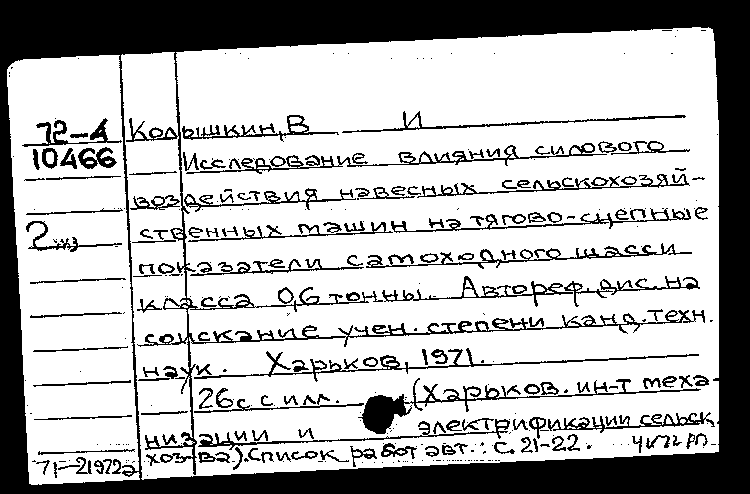 72-А Колышкин, В И
10466 Исследование влияния силового
воздействия навесных сельскохозяй-
ственных машин на тягово-сцепные
показатели самоходного шасси
класса 0,6 тонны. Автореф. дис. на
соискание учен. степени канд. техн.
наук. Харьков, 1971.
26с с илл. (Харьков. ин-т меха-
низации и электрификации сельск.
71-21972а хоз-ва). Список работ авт.: с. 21-22.